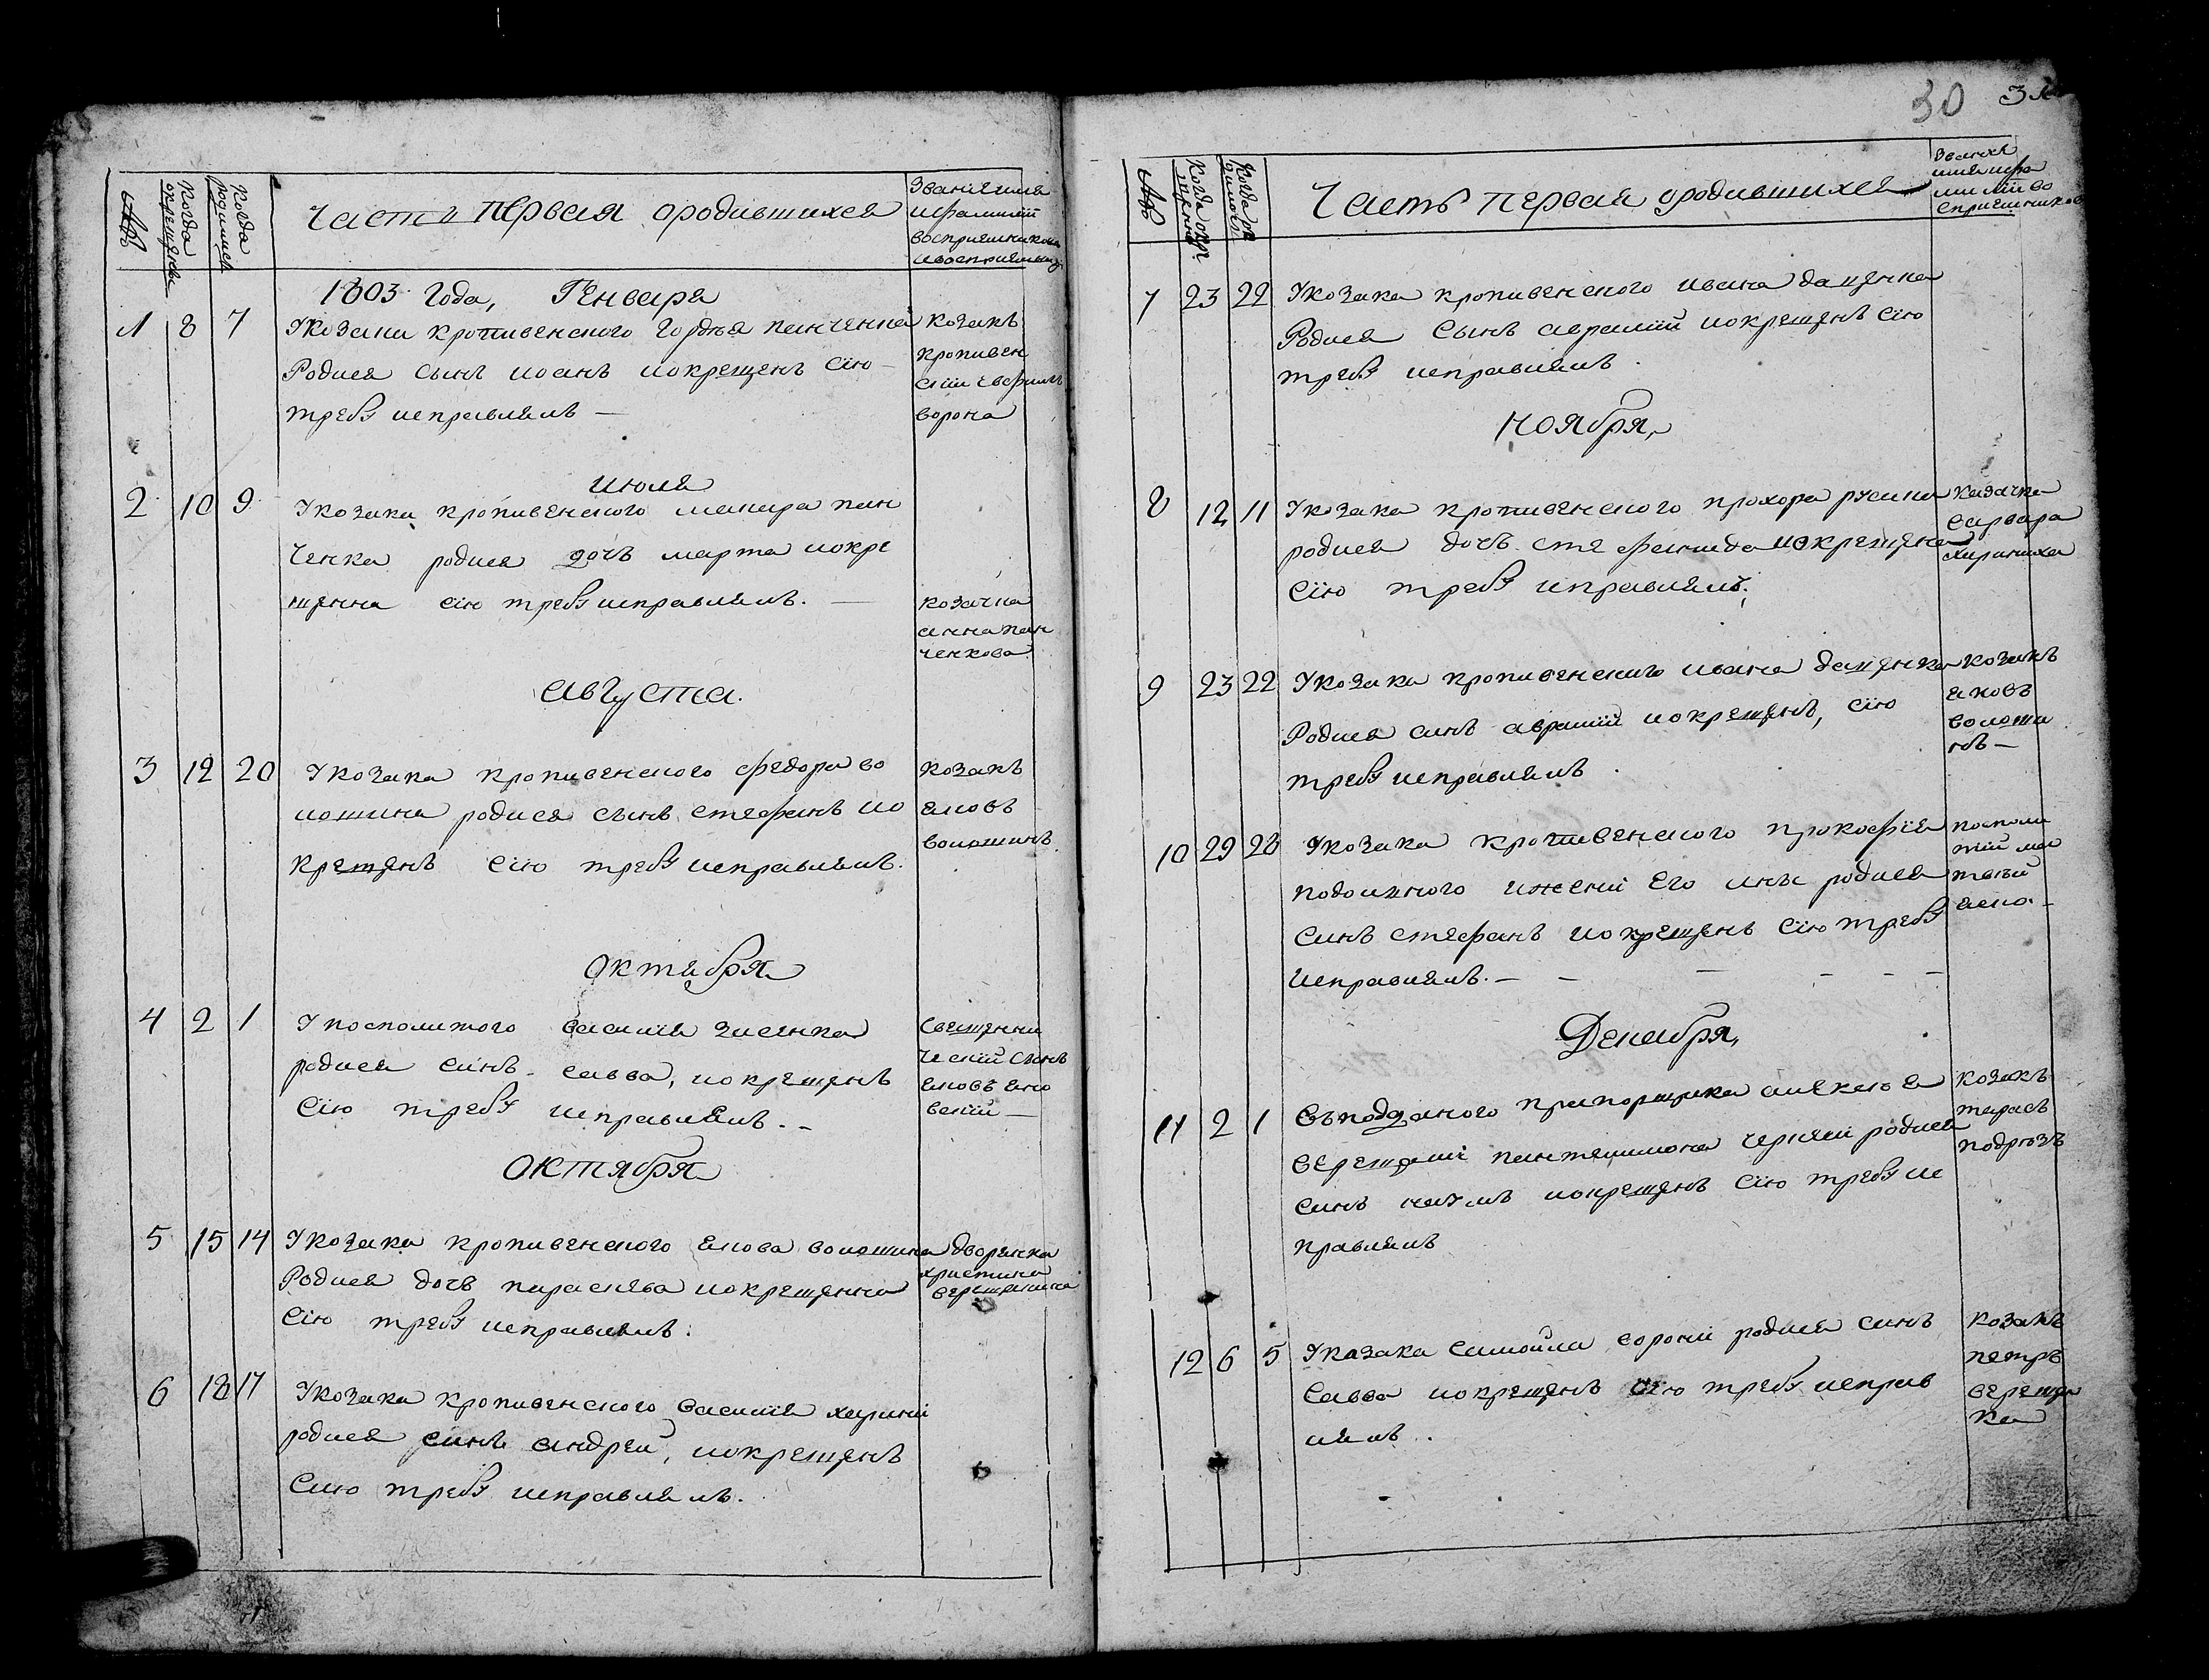 №
Когда
окрещены
Когда
родились
Часть первая ородившихся
Звания имя
ифамилии
восприемников
1803 Года, Генваря
1 8 7
Укозака кропивенского Гордѣя панченка
Родися сынъ иоанъ иокрещенъ сїю
требу исправлялъ —
козакъ
кропивен
скїи
ворона
июля
2 10 9
Укозака кропивенского макара пан
ченка родися дочь марта иокре
щенна сїю требу исправлялъ. —
козачка
анна пан
ченкова
августа.
3 12 20
Укозака кропивенского федора во
лошина родися сынъ стефанъ ио
крещенъ сїю требу исправлялъ.
козакъ
яковъ
волошинъ
октября
4 2 1
Упосполитого василїя зиенка
родися синъ савва, иокрещенъ
сїю требу исправлялъ. –
Священни
ческїй сынъ
яковъ яно
вскїй —
октября
5 15 14
Укозака кропивенского якова волошина
Родися дочь параскева иокрещенна
сїю требу исправлялъ.
дворянка
христина
верещакина
6 18 17
Укозака кропивенского василїя
родися синъ андрей, иокрещенъ
сию требу исправлялъ.
30
№
Когда окр
Когда
Часть первая ородившихся
Звания
имя ифа
милїи во
сприемников
7 23 22
Укозака кропивенского ивана даценка
Родися Сынъ аврамїй иокрещенъ сїю
требу исправлялъ.
ноября,
8 12 11
Укозака кропивенского прохора русина
родися дочь стефанида иокрещена
сїю требу исправлялъ.
казачка
варвара
9 23 22
Укозака кропивенского ивана даценка
Родися синъ аврамїй иокрещенъ, сїю
требу исправлялъ.
козакъ
яковъ
волоши
нъ —
10 29 28
Укозака кропивенского прокофїя
иженї его родися
синъ стефанъ иокрещенъ сїю требу
исправлялъ. —
посполи
тїй ма
твѣй
Декабря,
11 2 1
Въподданого прапорщика алексѣя
верещакї пантелимона родися
синъ наумъ иокрещенъ сїю требу ис
правлялъ
козакъ
тарасъ
12 6 5
Укозака самойла ворони родися синъ
савва иокрещенъ сїю требу исправ
лялъ.
козакъ
петръ
вереща
ка